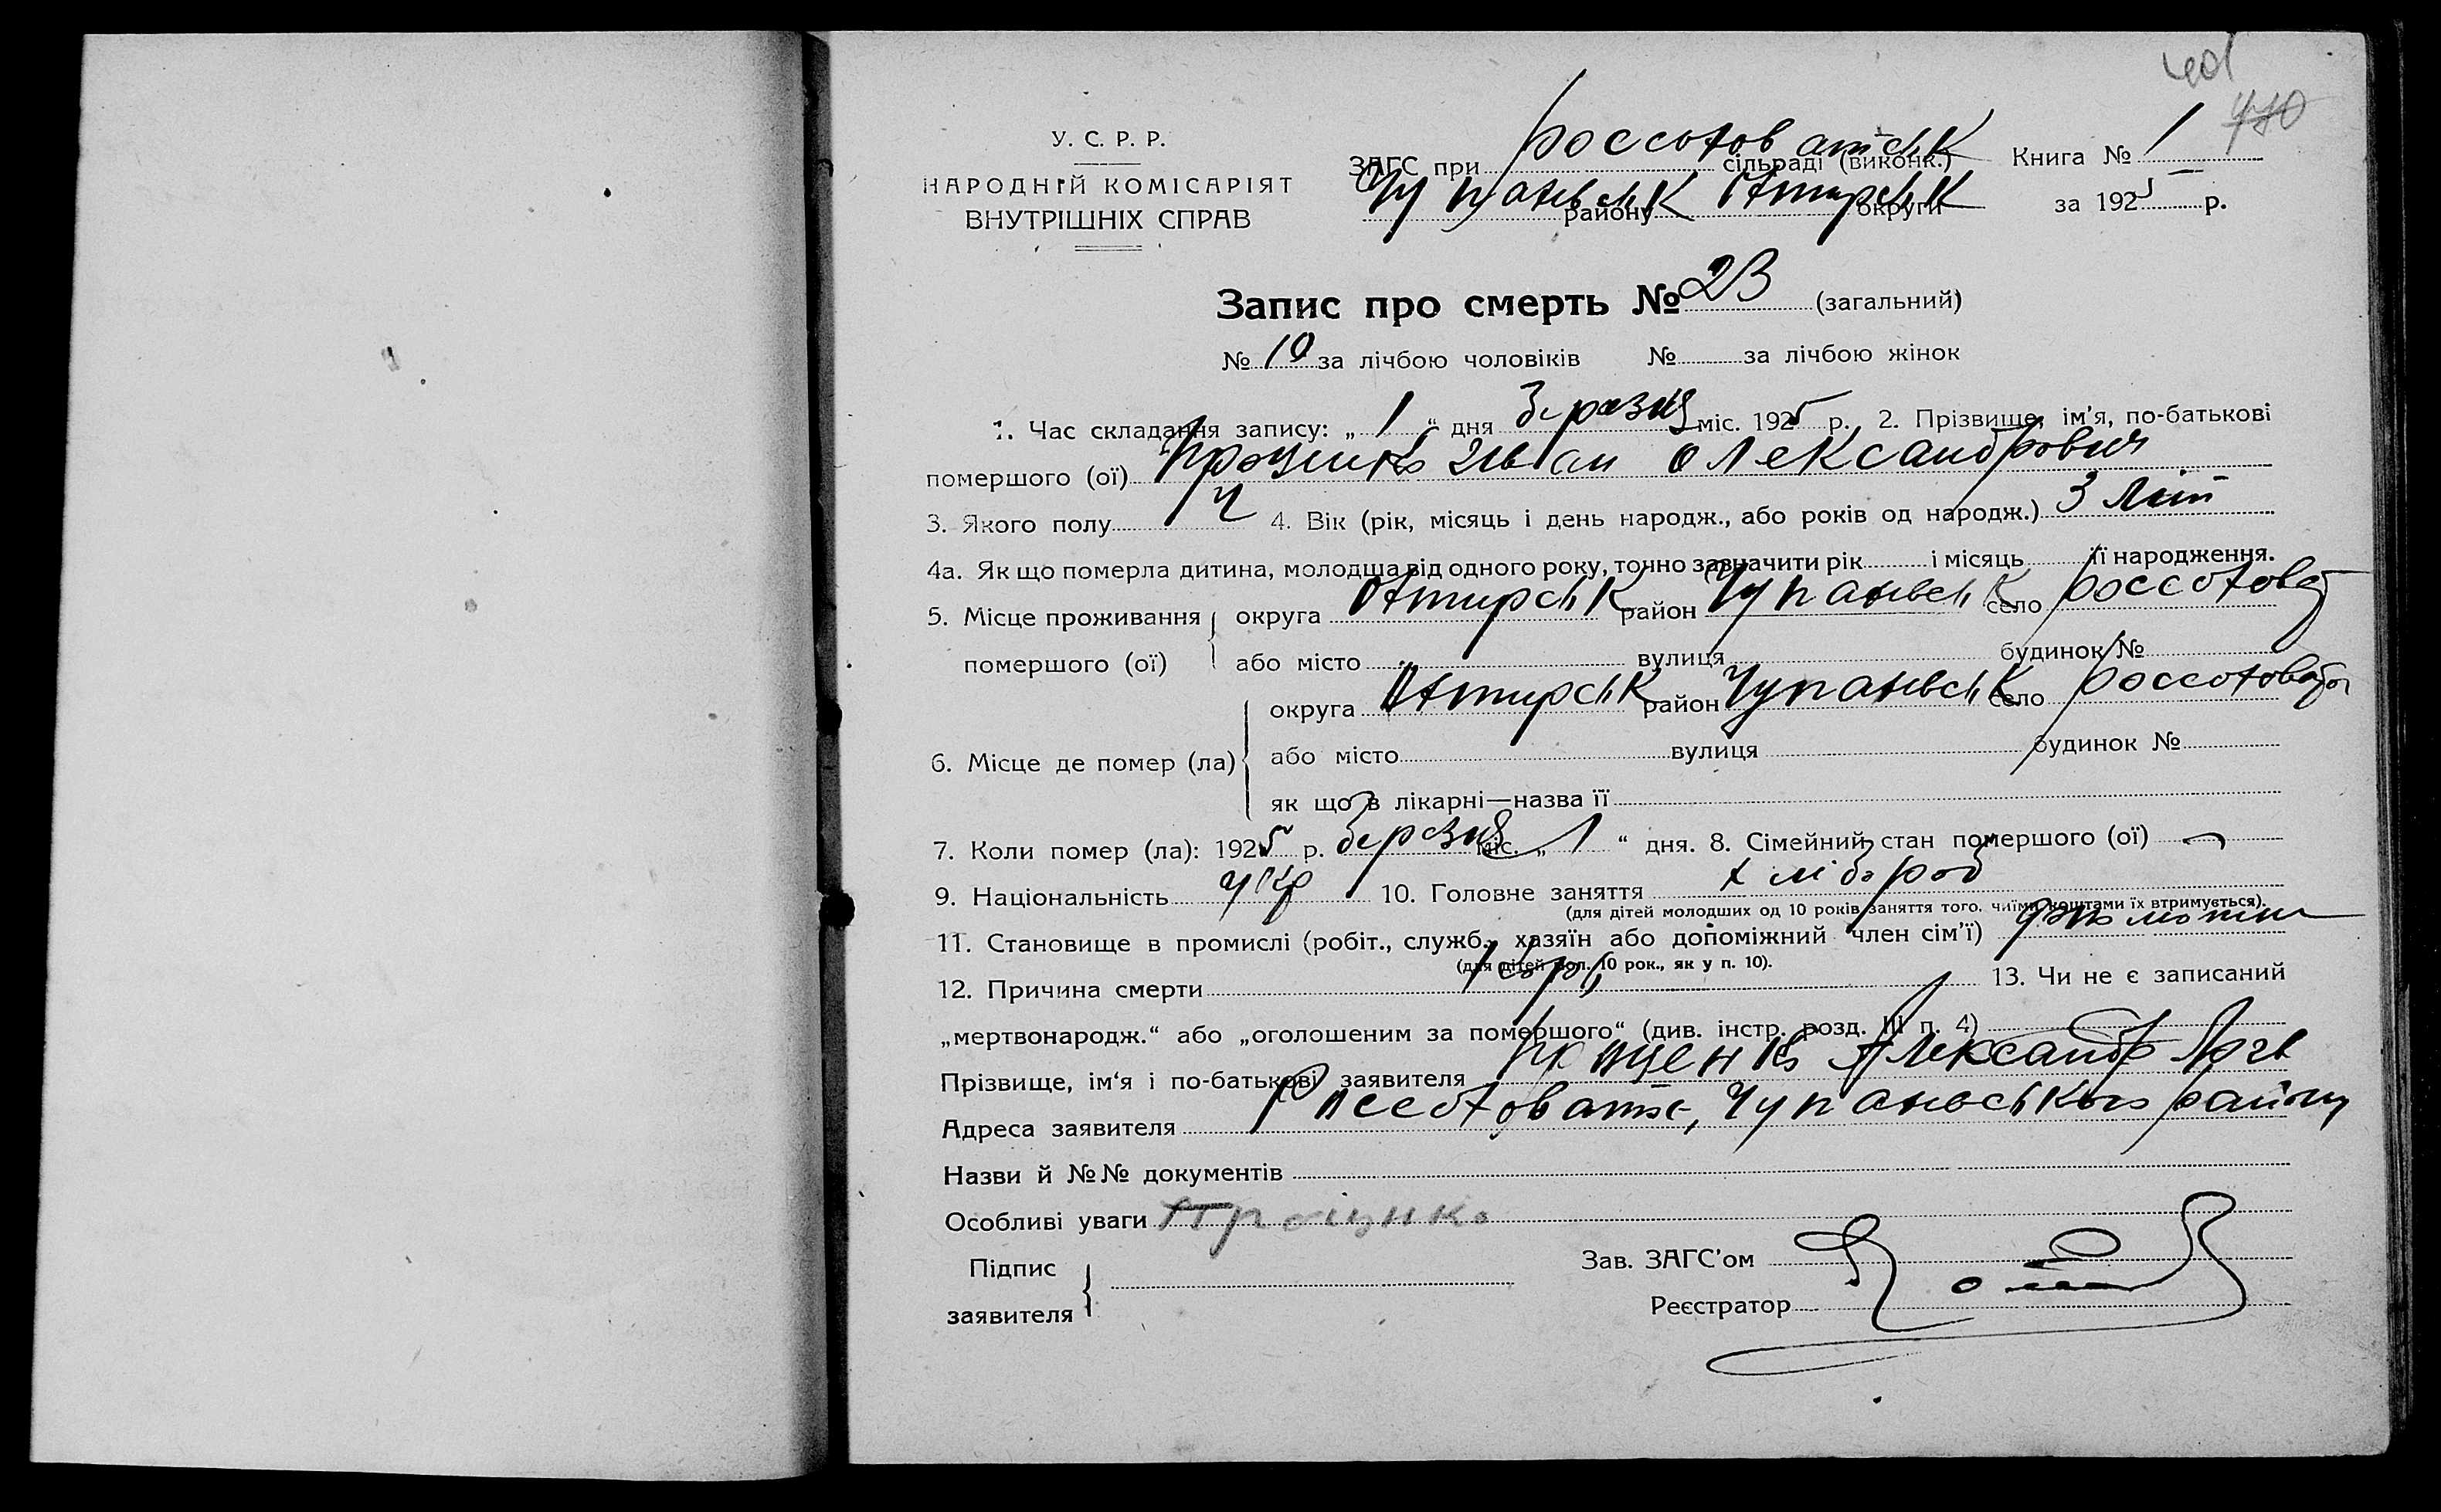 У. С. Р. Р.
НАРОДНІЙ КОМІСАРІЯТ
ВНУТРІШНІХ СПРАВ
ЗАГС при Россоховатськ сільраді (виконк.) Книга № 1
Чупахівськ району Охтирськ округи за 1925 р.
Запис про смерть № 23 (загальний)
№ 10 за лічбою чоловіків № за лічбою жінок
1. Час складання запису: „ 1 “ дня березня міс. 1925 р. 2. Прізвище, ім’я, по-батькові
помершого (ої) Іван Олександрович
3. Якого полу Ч 4. Вік (рік, місяць і день народж., або років од народж.) 3 літ
4а. Як що померла дитина, молодша від одного року, точно зазначити рік і місяць її народження.
5. Місце проживання помершого (ої) округа Охтирськ район Чупахівськ село Россоховат
або місто вулиця будинок №
6. Місце де помер (ла) округа Охтирськ район Чупахівськ село
або місто вулиця будинок №
як що в лікарні—назва її
7. Коли помер (ла): 1925 р. березня міс. „ 1 “ дня. 8. Сімейний стан помершого (ої) —
9. Національність Укр 10. Головне заняття хлібороб
(для дітей молодших од 10 років заняття того, чиїми коштами їх втримується).
11. Становище в промислі (робіт., служб., хазяїн або допоміжний член сім’ї)
(для дітей мол. 10 рок., як у п. 10).
12. Причина смерти 13. Чи не є записаний
„мертвонародж.“ або „оголошеним за помершого“ (див. інстр. розд. III п. 4)
Прізвище, ім‘я і по-батькові заявителя Проценко Александр
Адреса заявителя Чупахівського району
Назви й №№ документів
Особливі уваги Проценко
Підпис
заявителя
Зав. ЗАГС’ом
Реєстратор